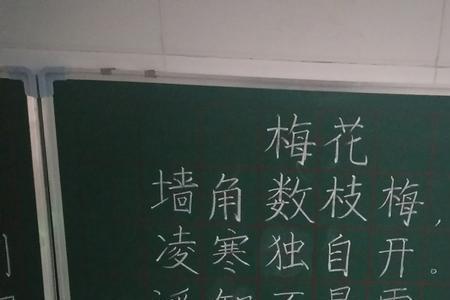 梅花
墙角数枝梅,
凌寒独自开。